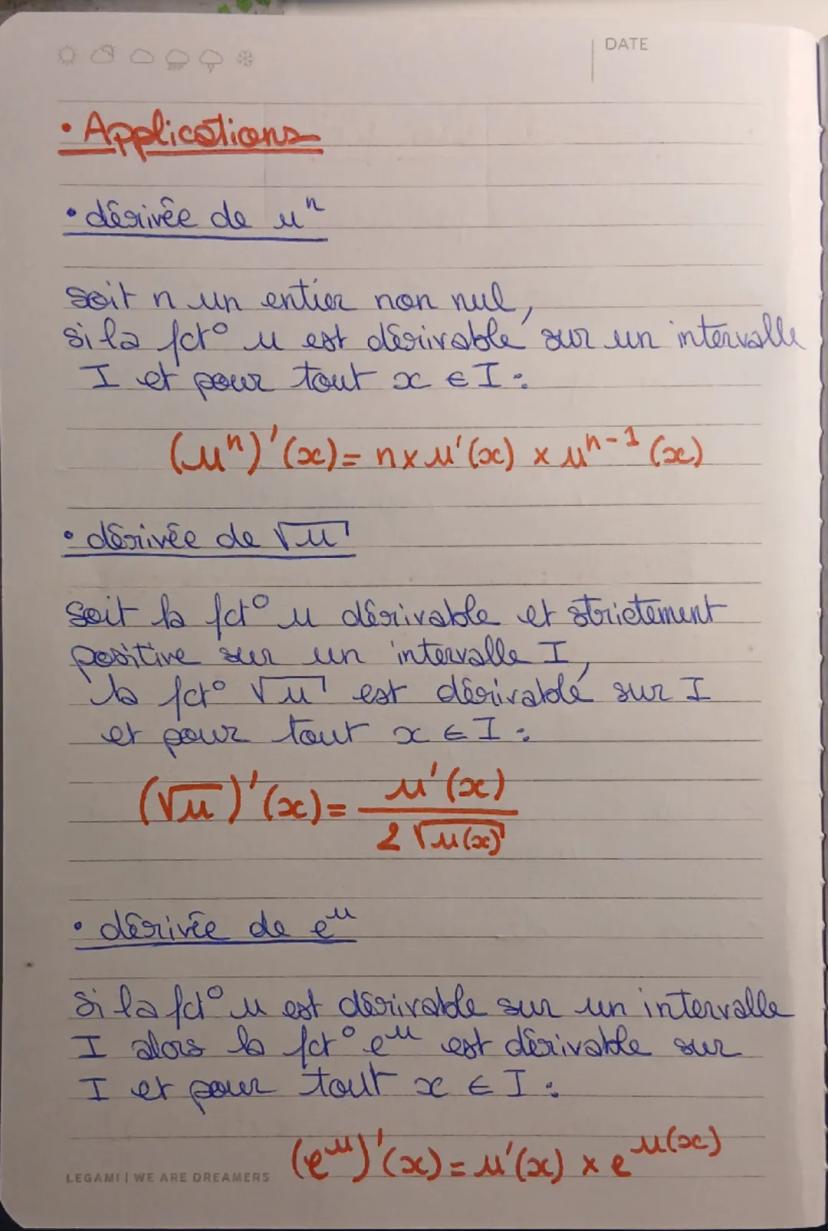 DATE
• Applications
• dérivée de uⁿ
soit n un entier non nul,
si la fct° u est dérivable sur un intervalle
I et pour tout x ∈ I :
(uⁿ)'(x) = n × u'(x) × uⁿ⁻¹(x)
• dérivée de √u
soit la fct° u dérivable et strictement
positive sur un intervalle I,
la fct° √u est dérivable sur I
et pour tout x ∈ I :
(√u)'(x) = u'(x) / 2√u(x)
• dérivée de eᵘ
si la fct° u est dérivable sur un intervalle
I alors la fct° eᵘ est dérivable sur
I et pour tout x ∈ I :
(eᵘ)'(x) = u'(x) × e^u(x)
LEGAMI | WE ARE DREAMERS